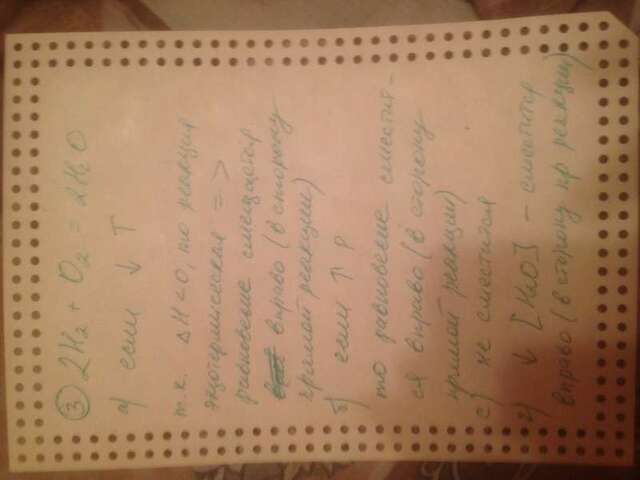 ③ 2H₂ + O₂ = 2H₂O
а) если ↓ T
т.к. ΔH < 0, то реакция
экзотермическая =>
равновесие смещается
вправо (в сторону
прямой реакции)
б) если ↑ p
то равновесие сместит-
ся вправо (в сторону
прямой реакции)
с) не сместится
г) ↓ [H₂O] – сместится
вправо (в сторону пр реакции)